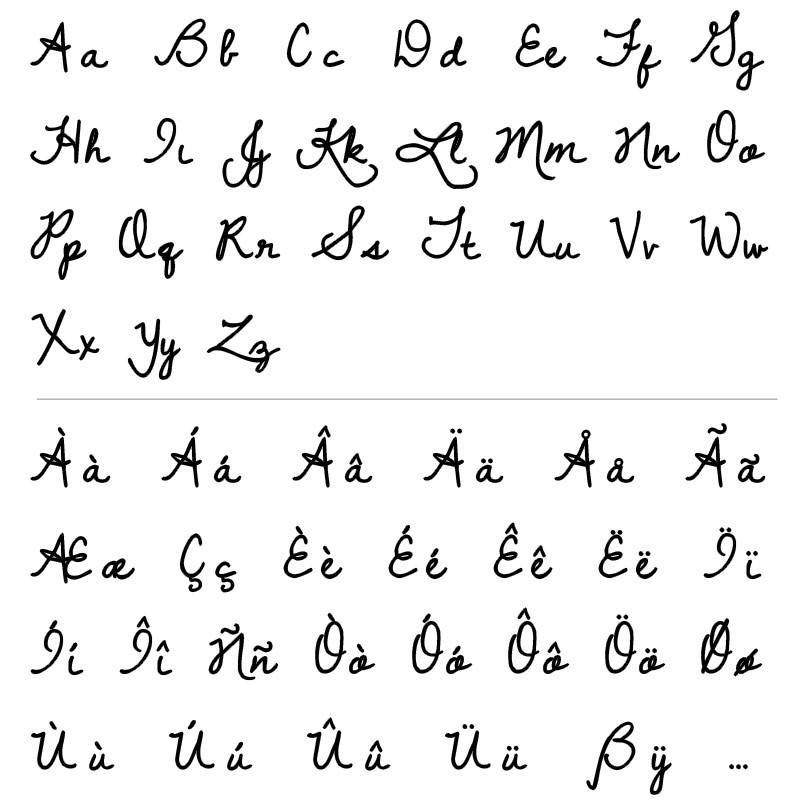 Aa Bb Cc Dd Ee Ff Gg
Hh Iı Jj Kk Ll Mm Nn Oo
Pp Qq Rr Ss Tt Uu Vv Ww
Xx Yy Zz
Àà Áá Ââ Ää Åå Ãã
Ææ Çç Èè Éé Êê Ëë Ïï
Íí Îî Ññ Òò Óó Ôô Öö Øø
Ùù Úú Ûû Üü ßÿ ...